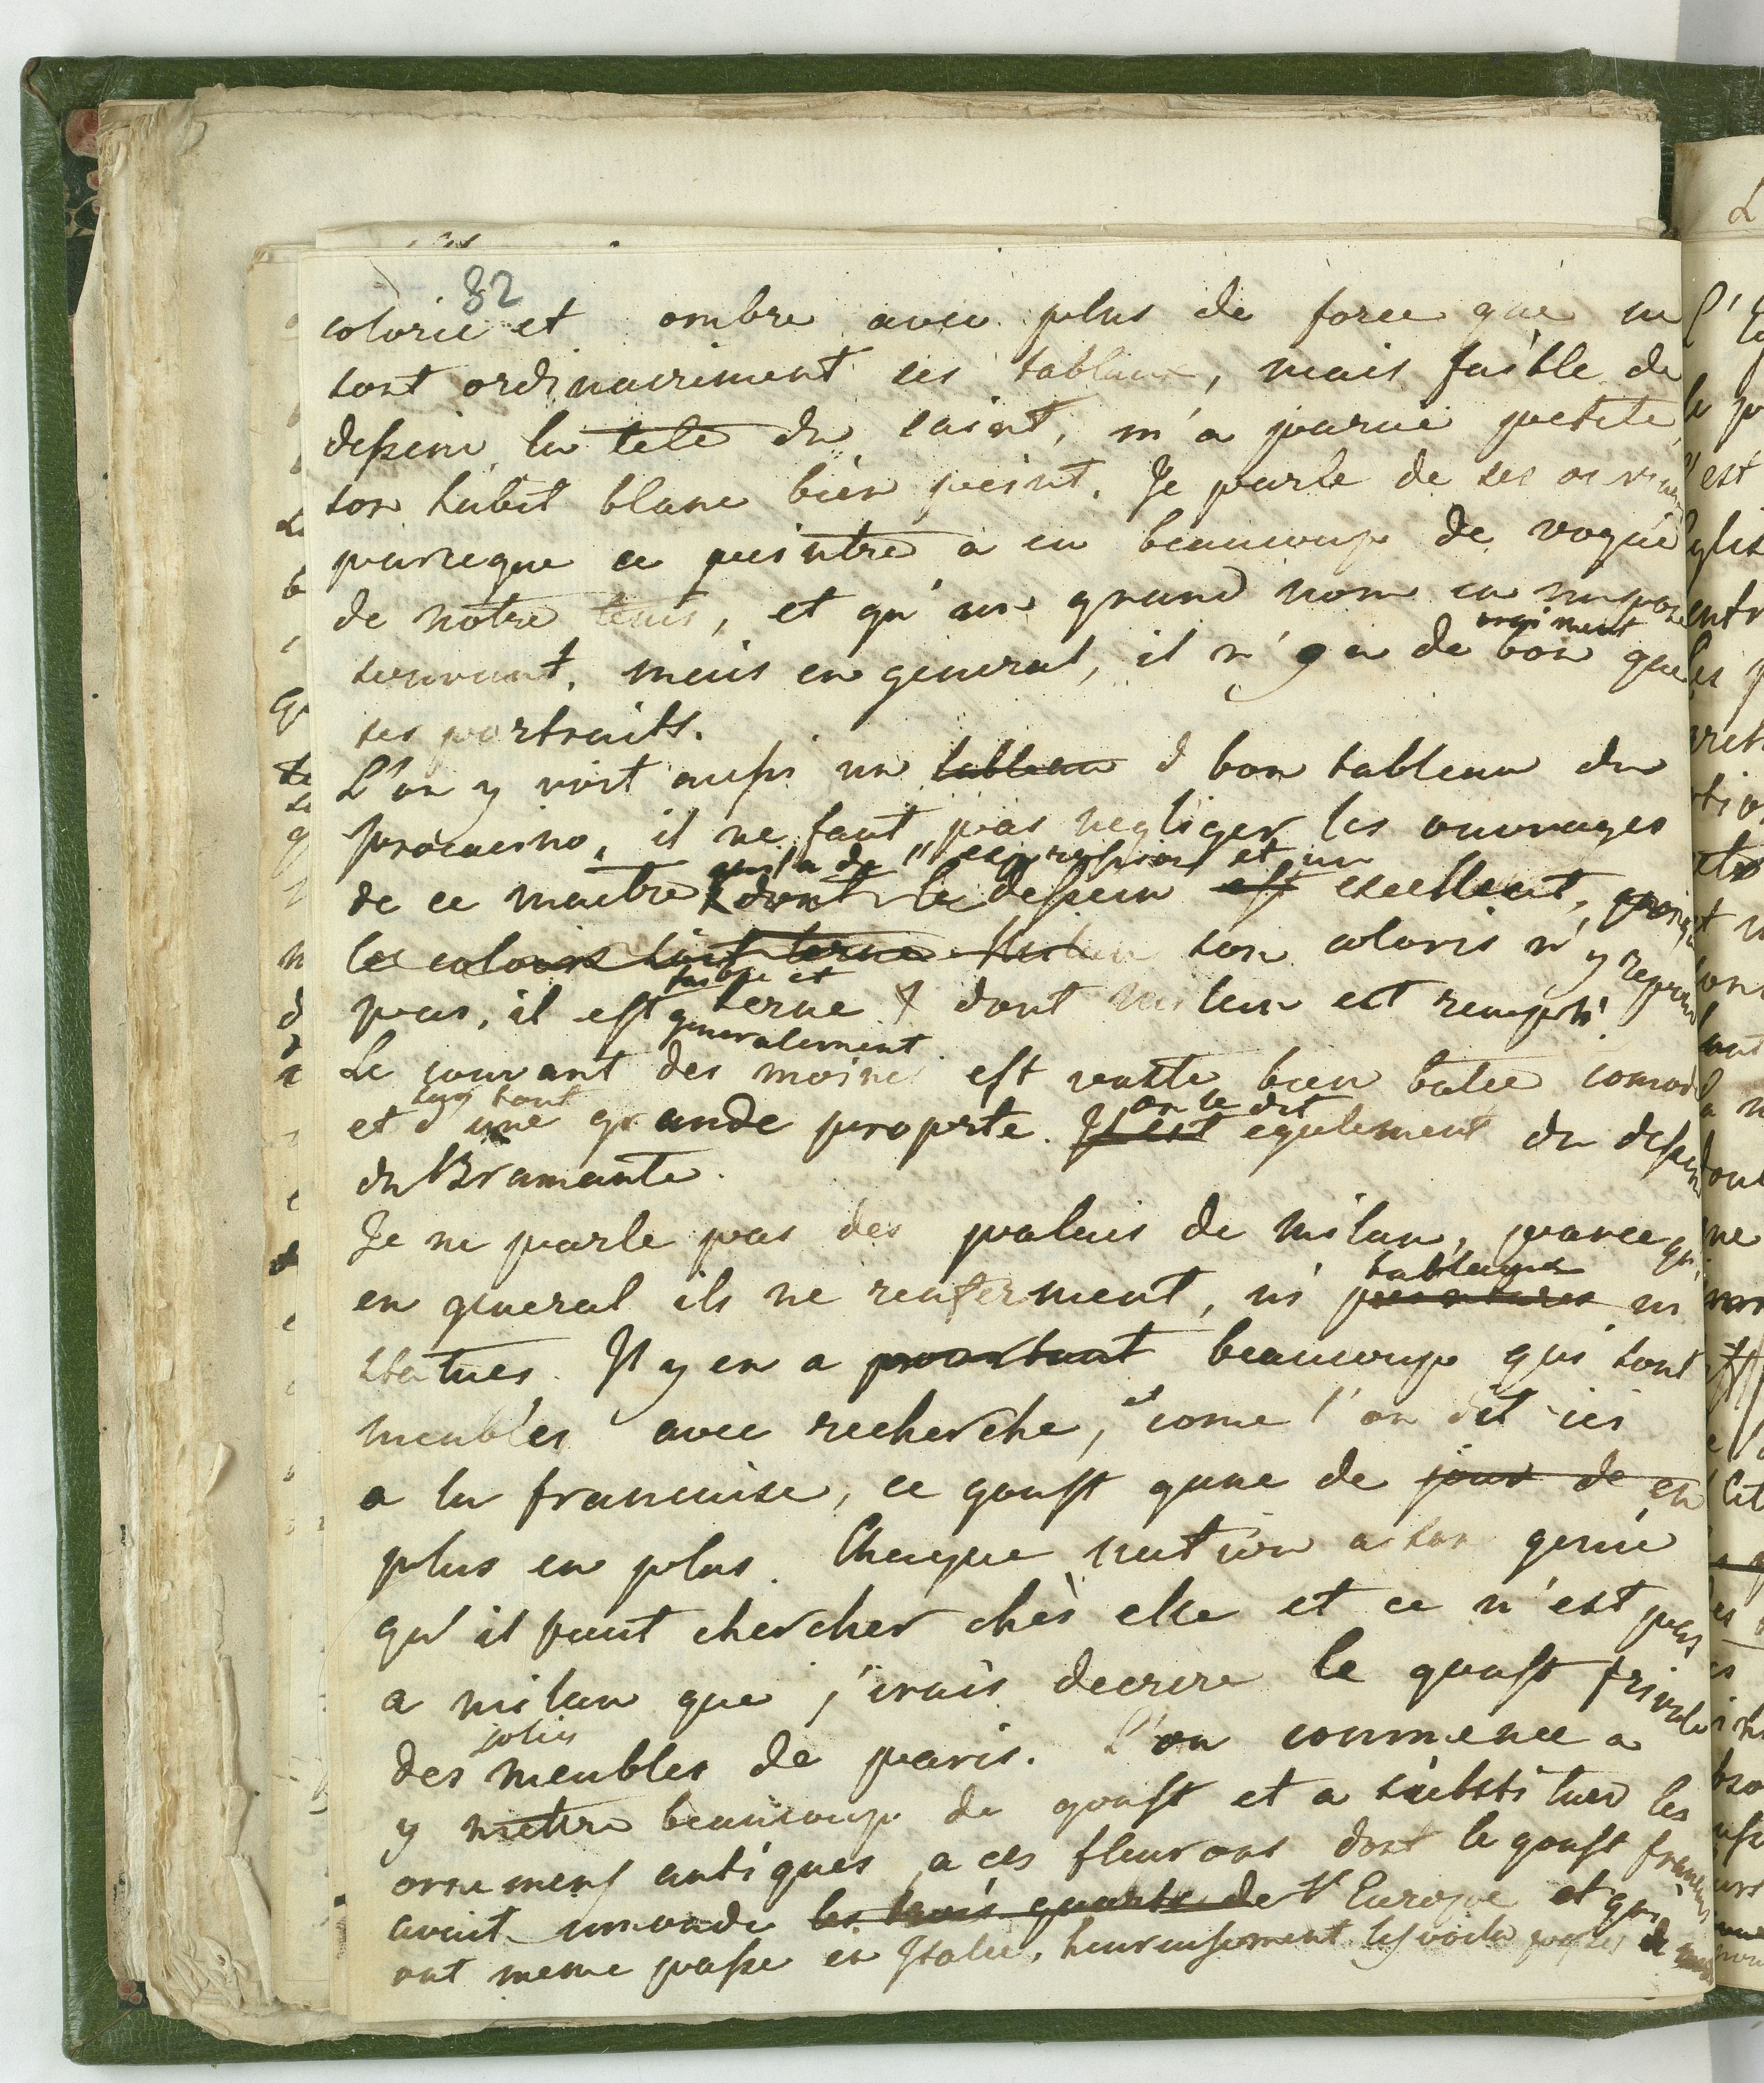 82
colorié et ombré avec plus de force que ne
sont ordinairement ses tablaux, mais faible de
dessein, la tete du saint, m'a parue petite,
son habit blanc bien peint. Je parle de ses
parceque ce peintre a eu beaucoup de vogue
de notre tems, et qu'un grand nom en impose
vraiment
souvant, mais en general, il n'y a de bon que
ses portraits.
L'on y voit aussi un tableau d bon tableau du
procacino, il ne faut pas negliger les ouvrages
qui a de l'expression et un
de ce maitre dont le dessein est excellent, quoiq
les coloris soit terne Milan son coloris n'y repond
faible et
pas, il est terne & dont milan est rempli.
generalement
Le couvant des moines est vaste bien batie comode
sur tout
et d'une grande proprte. Il est egalement du dessein
on le dit
du Bramante.
Je ne parle pas des palais de milan, parce qu
tableaux
en general ils ne renferment, ni peintures ni
statues. Il y en a pourtant beaucoup qui sont
meublés avec recherche, et come l'on dit ici
a la francaise, ce goust gane de jour de en
plus en plus. Chaque nation a son genie
qu'il faut chercher chès elle et ce n'est pas
a milan que j'irais decrire le goust frivole
jolis
des meubles de paris. L'on commence a
y metre beaucoup de goust et a substituer les
ornemens antiques a ces fleurons dont le goust francais
avait innondé les trois quarts de l'Europe et qui
ont meme passe en Italie, heureusement les voila passes de